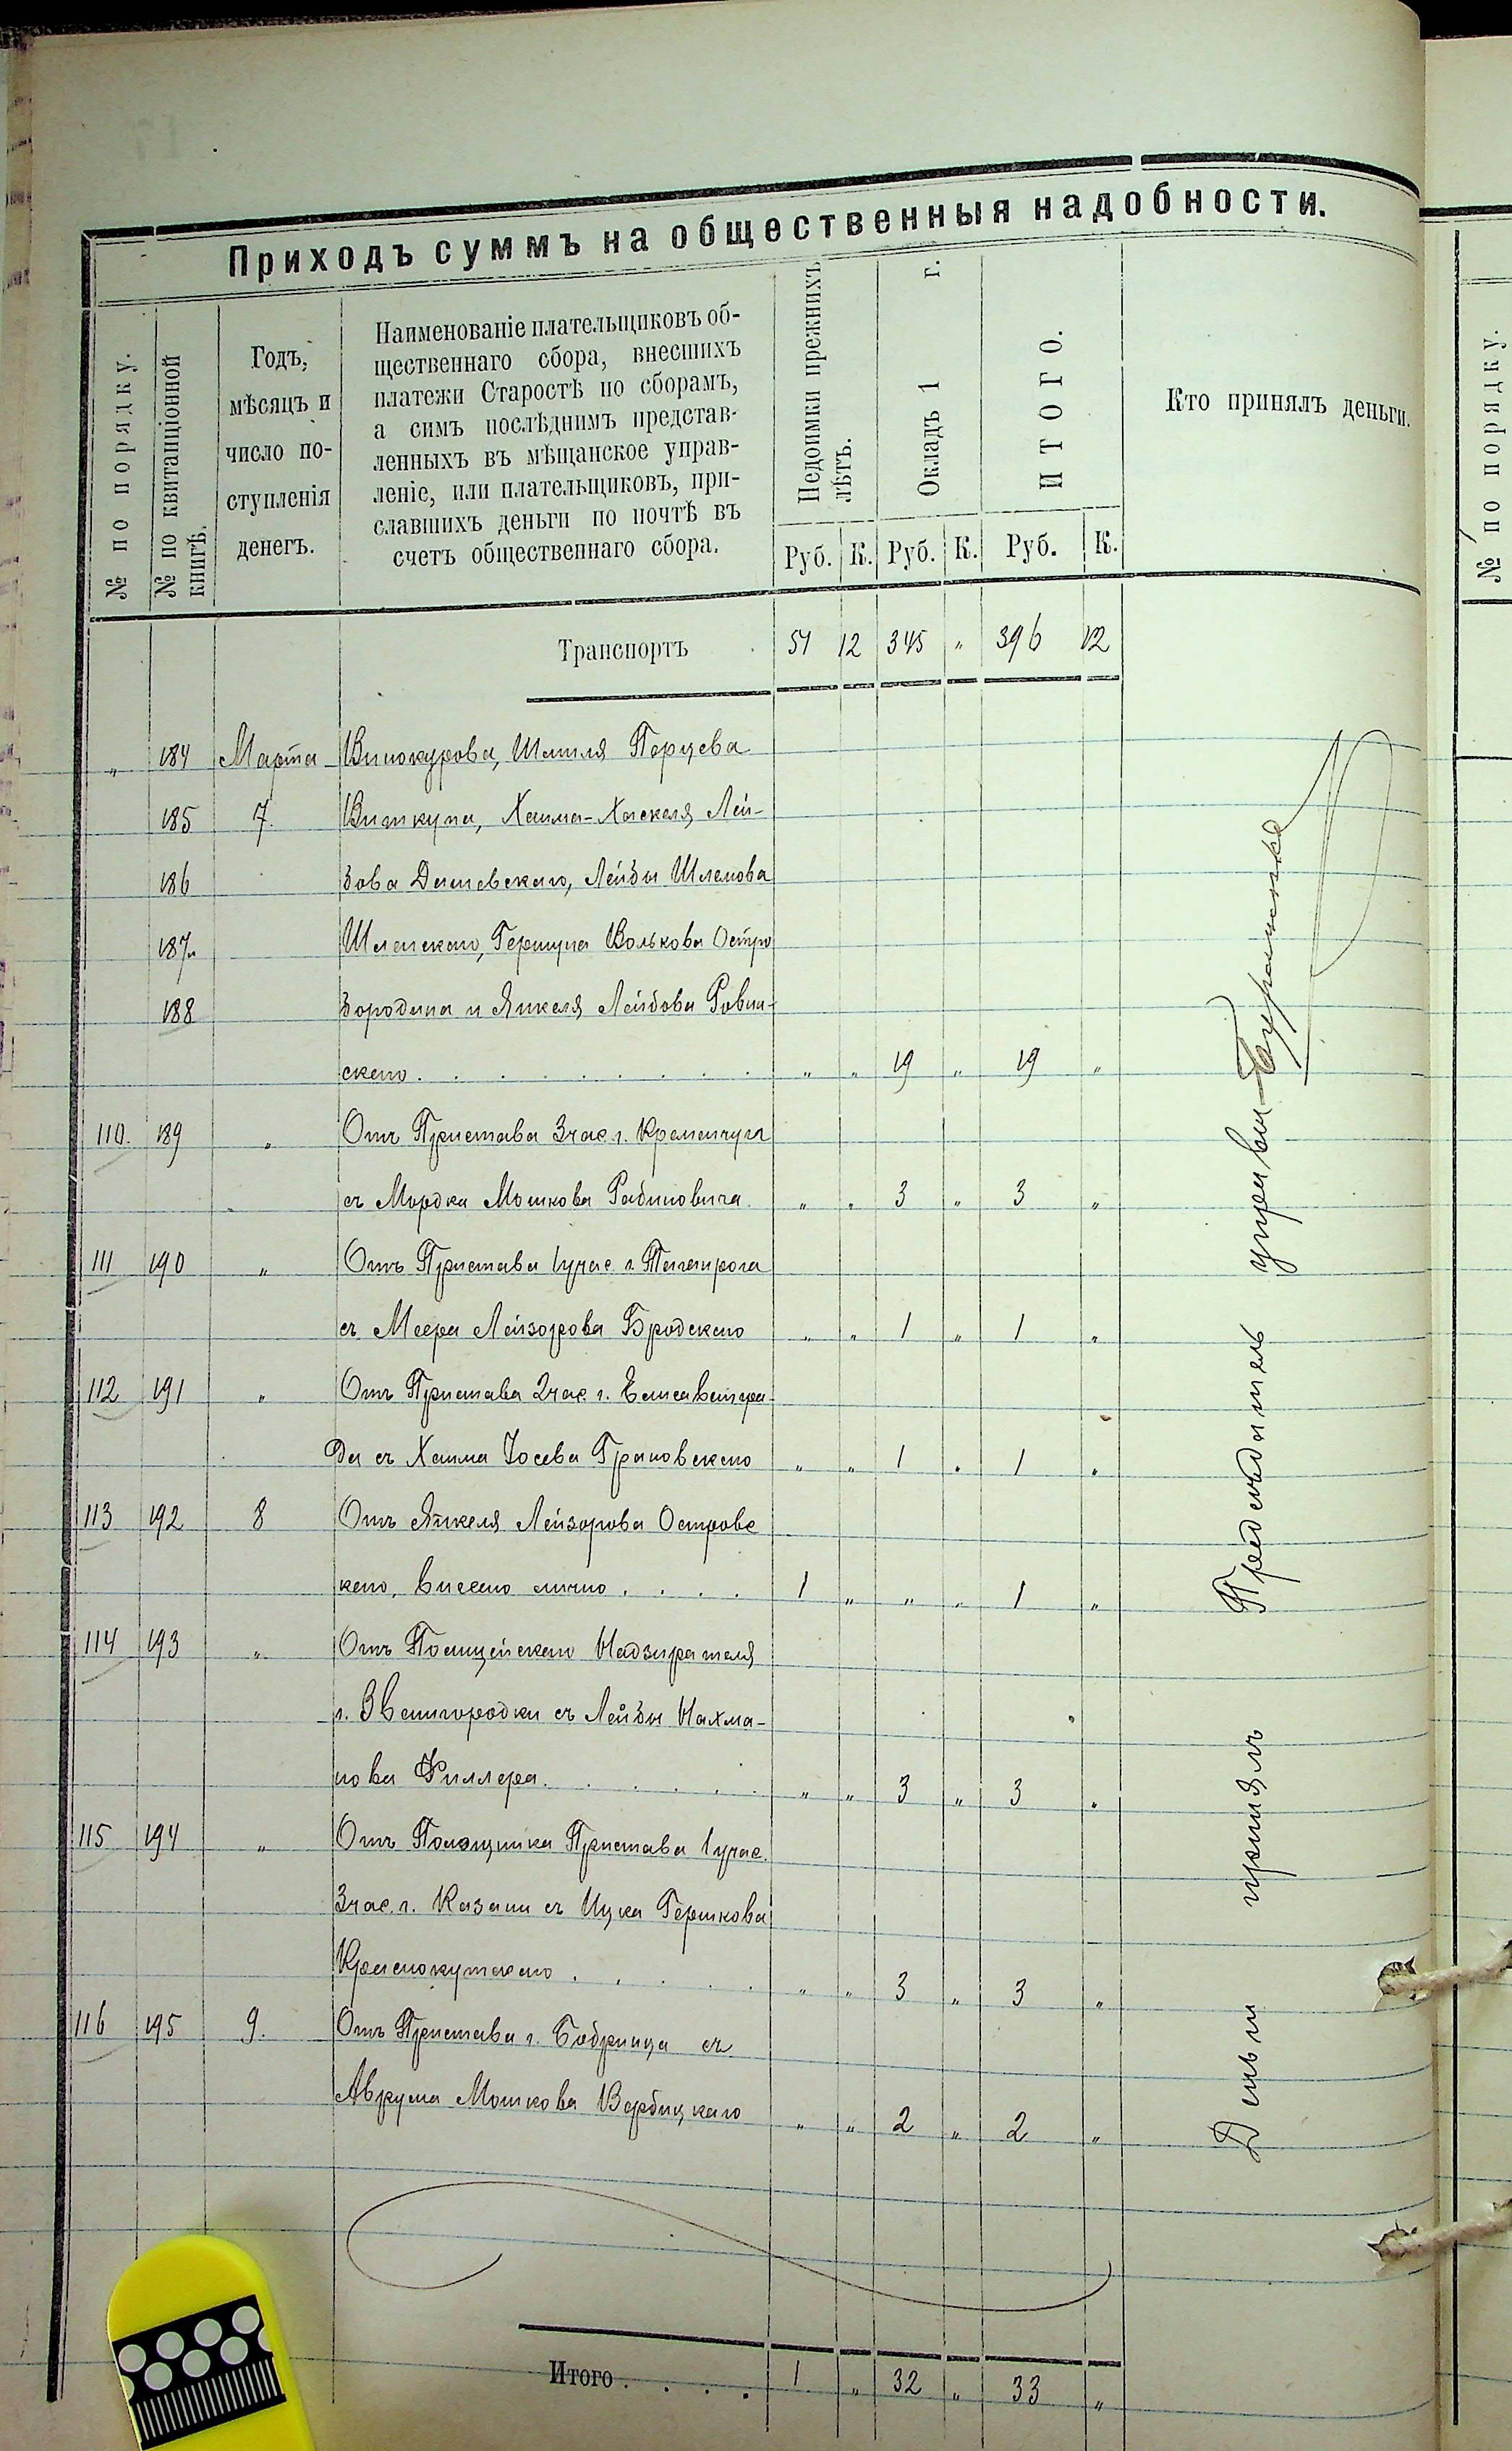 Приходъ суммъ на общественныя надобности.
№ по порядку.
№ по квитанціонной книгѣ.
Годъ, мѣсяцъ и число поступленія денегъ.
Наименованіе плательщиковъ об-
щественнаго сбора, внесшихъ
платежи Старостѣ по сборамъ,
а симъ послѣднимъ представ-
ленныхъ въ мѣщанское управ-
леніе, или плательщиковъ, при-
славшихъ деньги по почтѣ въ
счетъ общественнаго сбора.
Недоимки прежнихъ лѣтъ.
Окладъ 1 г.
ИТОГО.
Кто принялъ деньги.
Руб. К. Руб. К. Руб. К.
Транспортъ 51 12 345 " 396 12
" 184 Марта Винокурова, Шмиля Перцева
185 7. Виткупа, Хаима-Хаскеля Лей-
186 бова Дашевскаго, Лейбы Шлемова
187 Гершуна Волькова Остро
188 бородина и Янкеля Лейбова Ровин-
скаго . . . . . . . . " " 19 " 19 "
110. 189 " Отъ Пристава 3 час. г. Кременчуга
съ Мордка Мошкова Рабиновича. " " 3 " 3 "
111 190 " Отъ Пристава 1 учас. г. Таганрога
съ Меера Лейзорова Бродскаго " " 1 " 1 "
112 191 " Отъ Пристава 2 час. г. Елисаветгра-
да съ Хаима Іосева Грановскаго " " 1 " 1 "
113 192 8 Отъ Янкеля Лейзорова Островс
каго, внесено лично . . . . 1 " " " 1 "
114 193 " Отъ Полицейскаго Надзирателя
г. Звенигородки съ Лейбы Нахма-
нова Филлера. . . . . . " " 3 " 3 "
115 194 " Отъ Помощника Пристава 1 учас.
3 час. г. Казани съ Ицка Гершкова
Краснокутскаго . . . . . " " 3 " 3 "
116 195 9. Отъ Пристава г. Бобринца съ
Аврума Мошкова Вербицкаго " " 2 " 2 "
Итого . . . . 1 " 32 " 33 "
Деньги принялъ Предсѣдатель управы
№ по порядку.